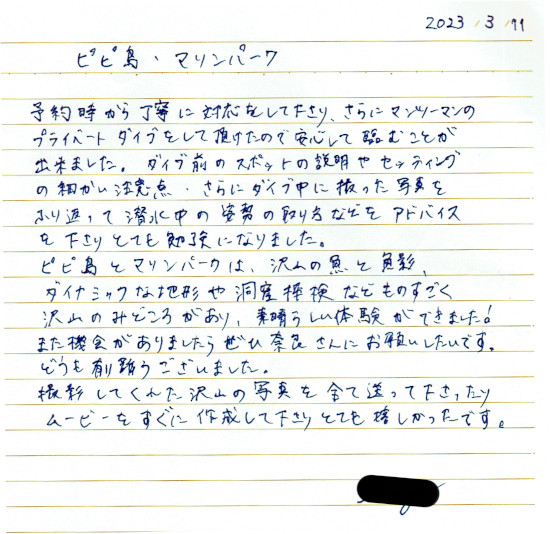 2023 / 3 / 11
ピピ島・マリンパーク
予約時から丁寧に対応をして下さり、さらにマンツーマンの
プライベートダイブをして頂けたので安心して臨むことが
出来ました。ダイブ前のスポットの説明やセッティング
の細かい注意点・さらにダイブ中に撮った写真を
ふり返って潜水中の姿勢の取り方などをアドバイス
を下さりとても勉強になりました。
ピピ島とマリンパークは、沢山の魚と魚影、
ダイナミックな地形や洞窟探検などものすごく
沢山のみどころがあり、素晴らしい体験ができました!
また機会がありましたらぜひ奈良さんにお願いしたいです。
どうも有難うございました。
撮影してくれた沢山の写真を全て送って下さったり
ムービーをすぐに作成して下さりとても嬉しかったです。